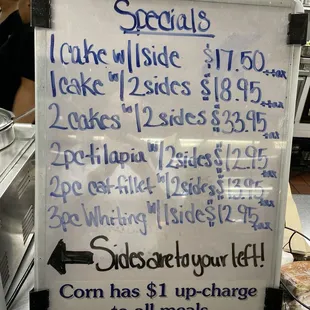 Specials
1 cake w/1 side $17.50 +tax
1 cake w/2 sides $18.95 +tax
2 cakes w/2 sides $33.95 +tax
2pc tilapia w/2 sides $12.95 +tax
2pc cat-fillet w/2 sides $13.95 +tax
3pc Whiting w/1 side $12.95 +tax
Sides are to your left!
Corn has $1 up-charge
to all meals